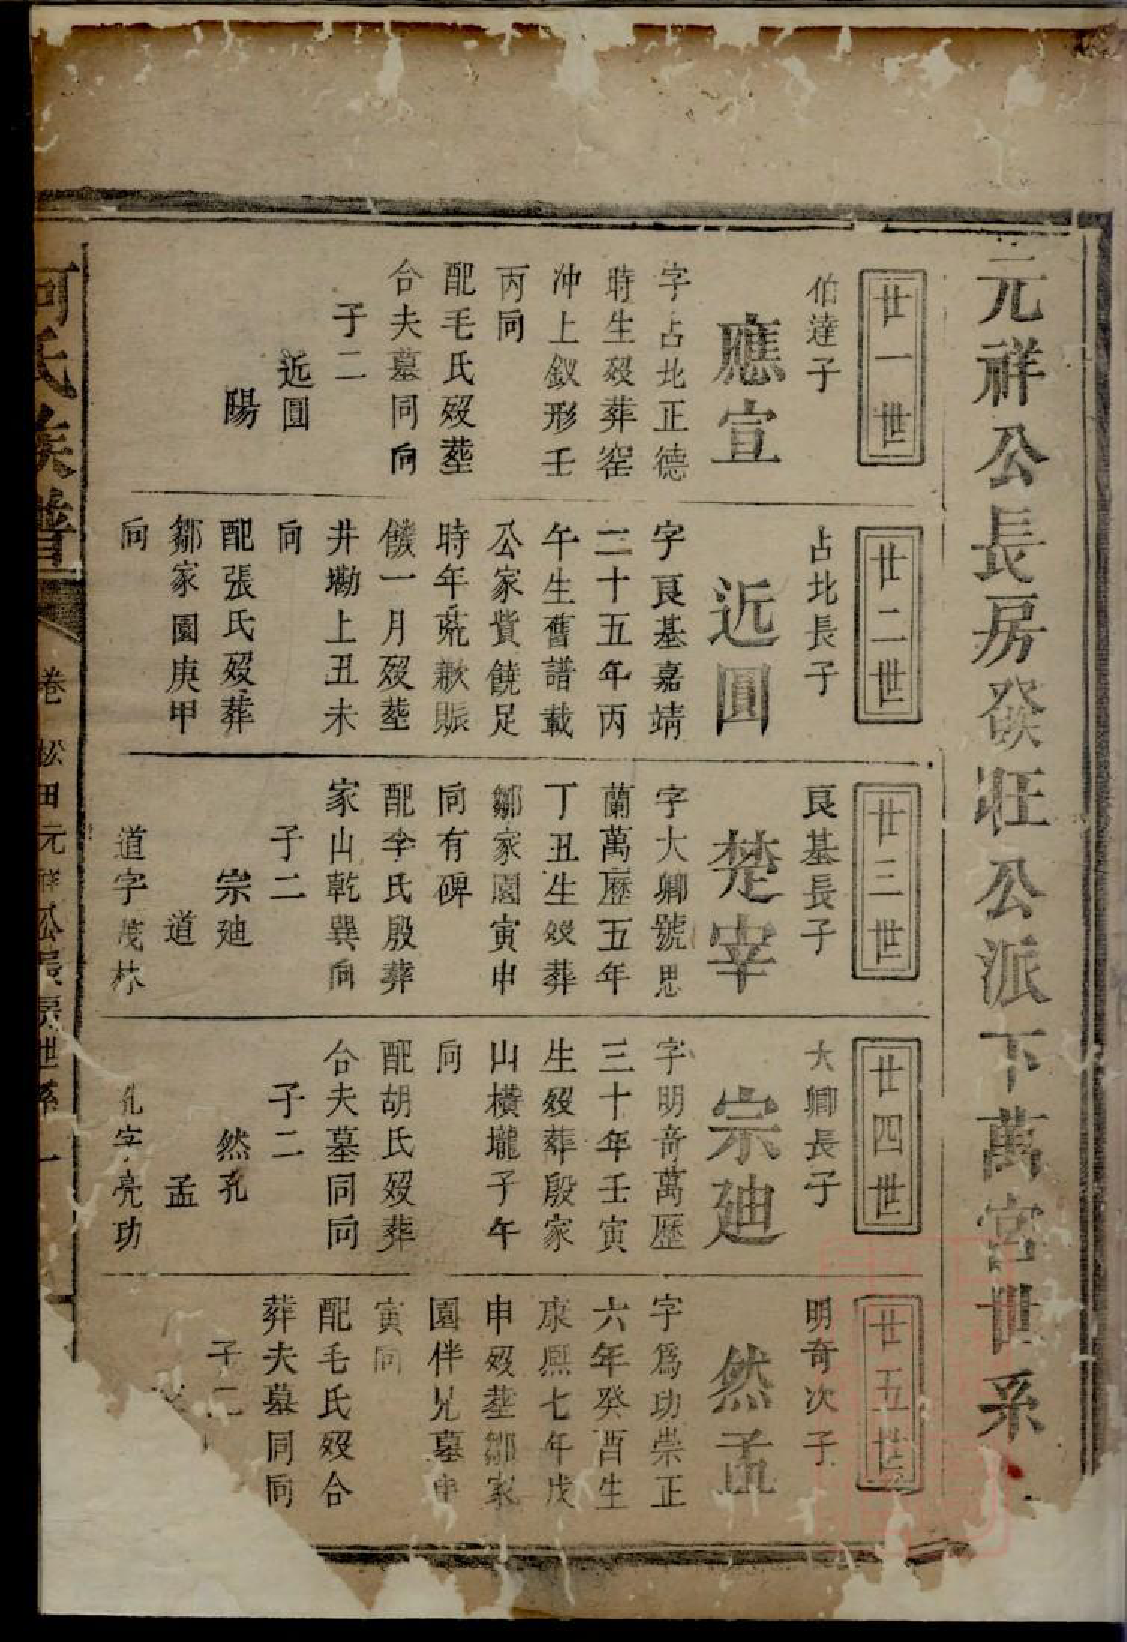 元祥公長房發壯公派下萬宮世系
廿一世
伯達子
應宣
字占北正德
時生殁葬窑
冲上釵形壬
丙向
配毛氏殁塟
合夫墓同向
子二
近圓
陽
廿二世
占北長子
近圓
字良基嘉靖
二十五年丙
午生舊譜載
公家貲饒足
時年荒歉賑
饑一月殁塟
井墈上丑未
向
配張氏殁葬
鄒家園庚甲
向
廿三世
良基長子
楚宰
字大卿號思
蘭萬歷五年
丁丑生殁葬
鄒家園寅申
向有碑
配李氏殷葬
家山乾巽向
子二
宗廸
道
道字茂林
廿四世
大卿長子
宗廸
字明竒萬歷
三十年壬寅
生殁葬殷家
山橫壠子午
向
配胡氏殁葬
合夫墓同向
子二
然孔
孟
孔字亮功
廿五世
明奇次子
然孟
字爲功崇正
六年癸酉生
康熙七年戊
申殁塟鄒家
園伴兄墓申
寅向
配毛氏殁合
葬夫墓同向
子二
何氏族譜
卷
松田元祥公長房世系
一